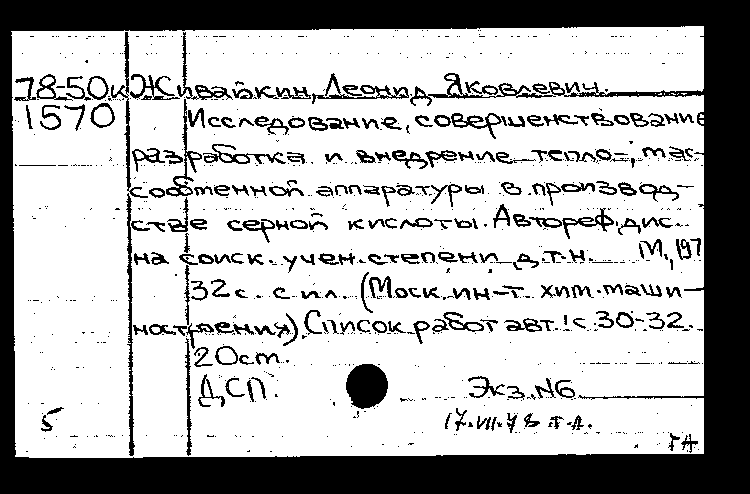 78-50к Живайкин, Леонид Яковлевич.
1570 Исследование, совершенствование
разработка и внедрение тепло-, мас-
сообменной аппаратуры в производ-
стве серной кислоты. Автореф. дис.
на соиск. учен. степени д.т.н. М., 197
32 с. с ил. (Моск. ин-т хим. маши-
ностроения). Список работ авт.: с 30-32.
20 см.
ДСП. Экз. №6
5 17.VII.78